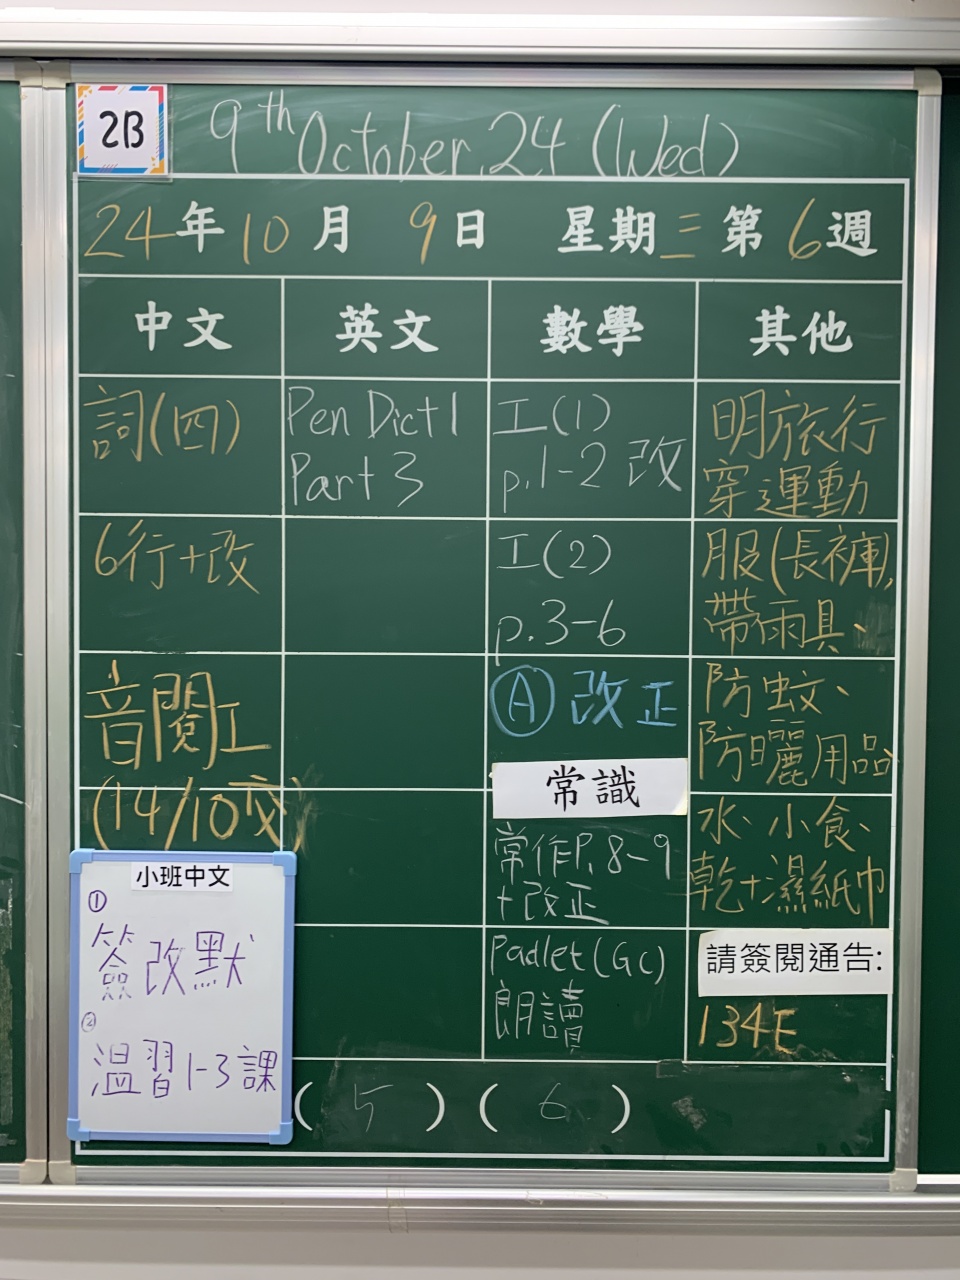 2B
9th October, 24 (Wed)
24年10月9日 星期三第6週
中文
英文
數學
其他
詞(四)
6行+改
音閱工
(14/10交)
小班中文
①
簽改默
②
溫習1-3課
Pen Dict 1
Part 3
工(1)
p.1-2 改
工(2)
p.3-6
Ⓐ改正
常識
常作P.8-9
+改正
Padlet(GC)
朗讀
明旅行
穿運動
服(長褲),
帶雨具、
防蚊、
防曬用品
水、小食、
乾+濕紙巾
請簽閱通告:
134E
(5)(6)